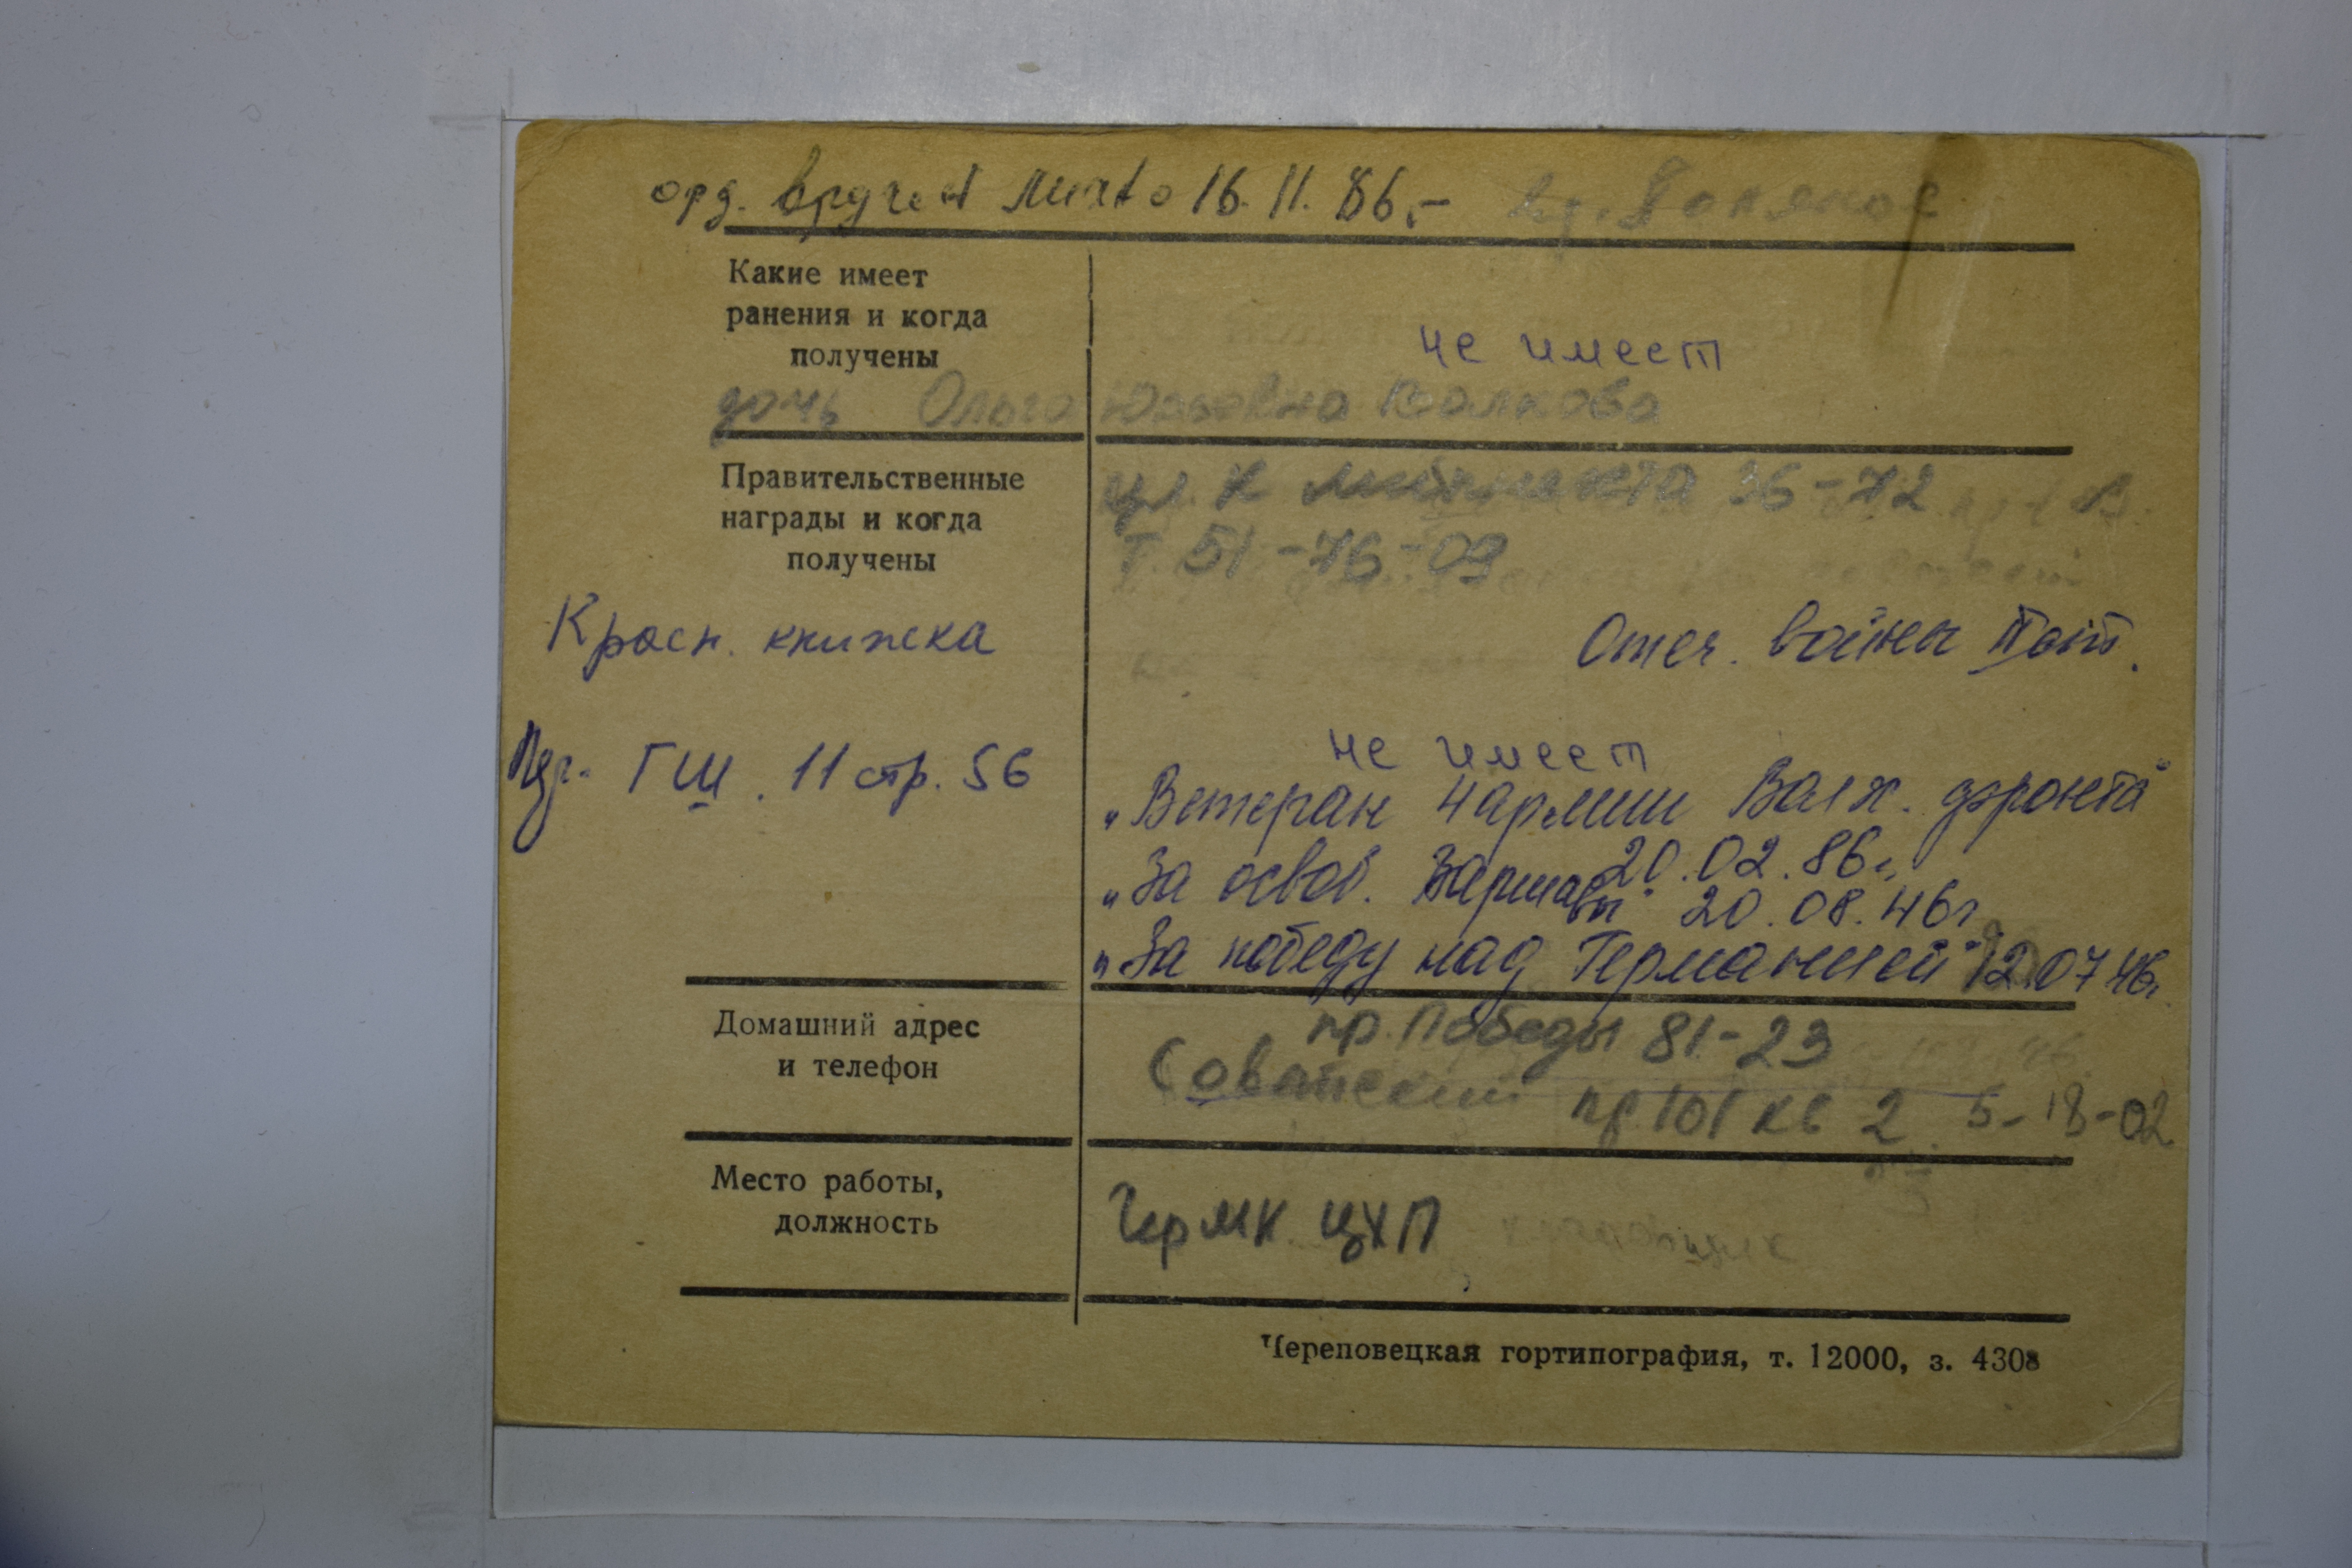 орд. вручен лично 16.11.86.-
Какие имеет
ранения и когда
получены
не имеет
дочь Ольга Юрьевна Волкова
Правительственные
награды и когда
получены
ул. К Либкнехта 36-72
т. 51-76-09
Красн. книжка
Отеч. войны II ст.
Удг. ГШ. 11 стр. 56
не имеет
„Ветеран 4 армии Волх. фронта"
20.02.86г.
„За освоб. Варшавы" 20.08.46г
„За победу над Германией" 12.07 46г.
Домашний адрес
и телефон
пр. Победы 81-23
Советский пр 101 кв 2. 5-18-02
Место работы,
должность
ЧерМК ЦХП
Череповецкая гортипография, т. 12000, з. 4308